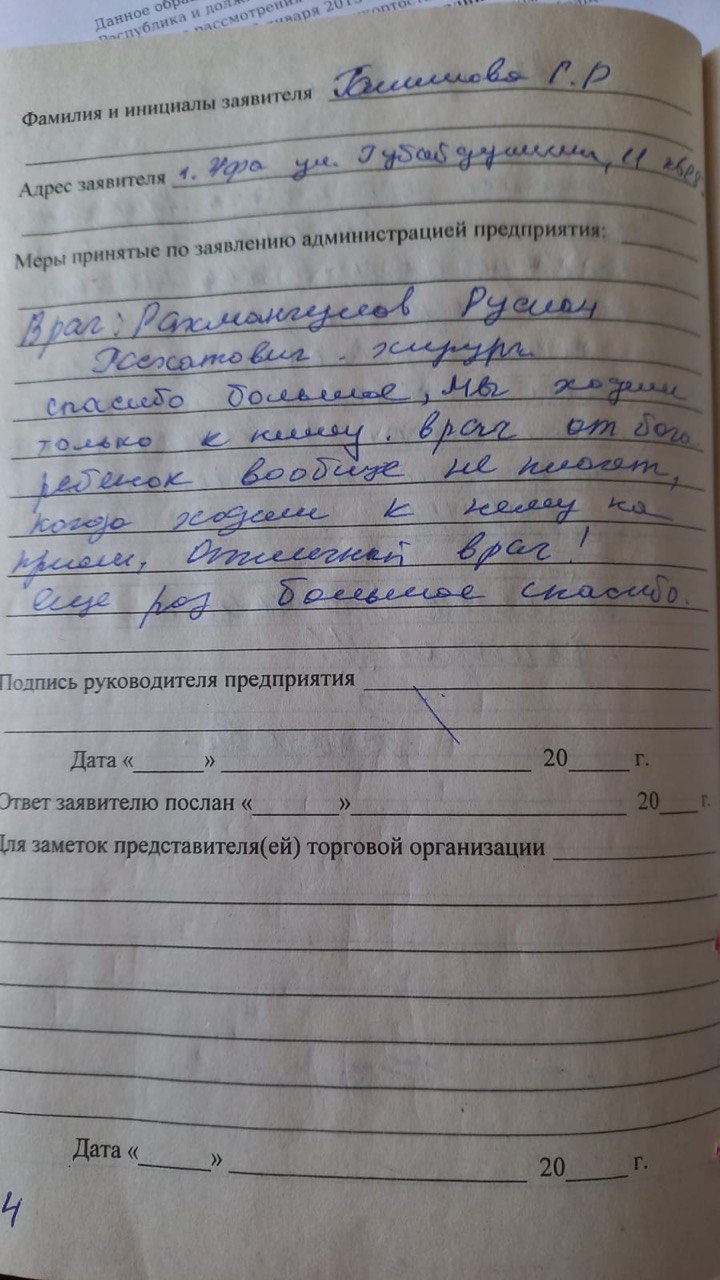 Данное обра
Республика и долж
рассмотрения
января 201
Фамилия и инициалы заявителя Г.Р
Адрес заявителя г. Уфа ул. 11 квар.
Меры принятые по заявлению администрацией предприятия:
Врач: Рахмангулов Руслан
хирург.
спасибо большое, Мы ходили
только к нему. врач от бога
ребенок вообще не плачет,
когда ходили к нему на
прием. Отличный врач!
еще раз большое спасибо.
Подпись руководителя предприятия
Дата « » 20 г.
Ответ заявителю послан « » 20 г.
Для заметок представителя(ей) торговой организации
Дата « » 20 г.
4